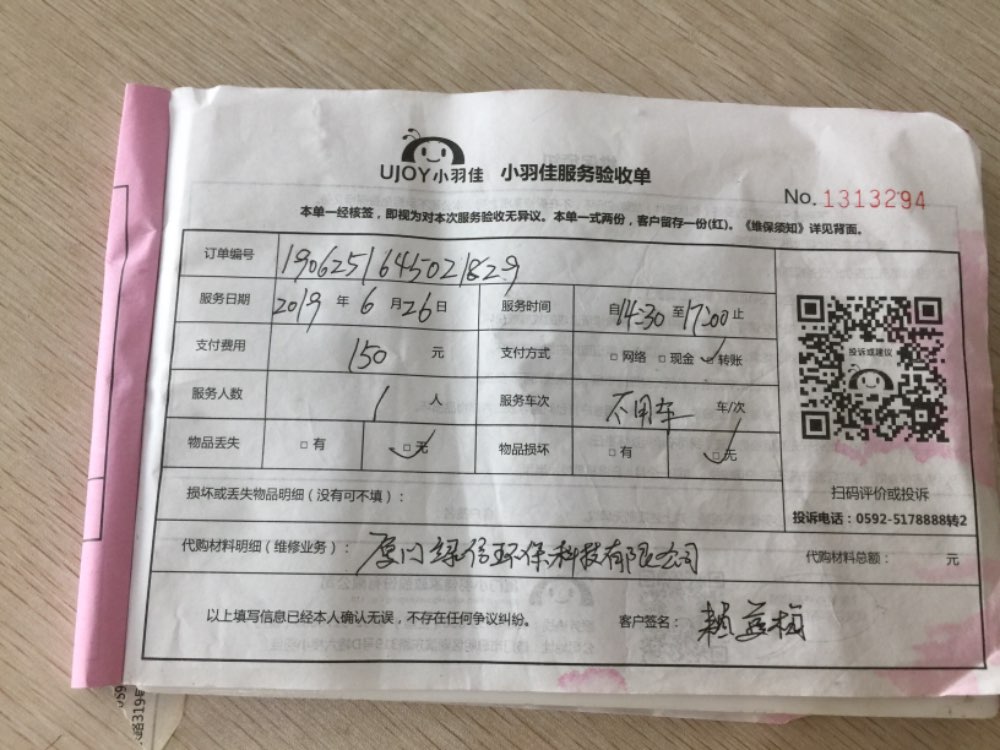 UJOY小羽佳 小羽佳服务验收单
No. 1313294
本单一经核签，即视为对本次服务验收无异议。本单一式两份，客户留存一份(红)。《维保须知》详见背面。
订单编号 1906251645021829
服务日期 2019 年 6 月 26 日 服务时间 自14:30 至17:00 止
支付费用 150 元 支付方式 □ 网络 □ 现金 ☑ 转账
服务人数 1 人 服务车次 不用车 车/次
物品丢失 □ 有 ☑ 无 物品损坏 □ 有 ☑ 无
投诉或建议
扫码评价或投诉
投诉电话：0592-5178888转2
损坏或丢失物品明细（没有可不填）：
代购材料明细（维修业务）：厦门绿信环保科技有限公司 代购材料总额： 元
以上填写信息已经本人确认无误，不存在任何争议纠纷。 客户签名：赖益梅
路319号